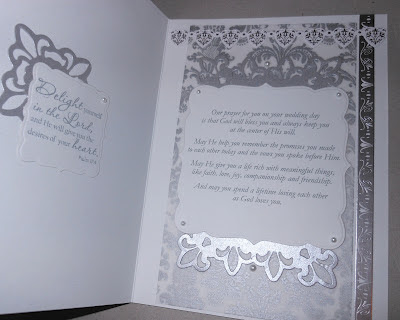 Delight yourself
in the Lord,
and He will give you the
desires of your heart.
Psalm 37:4
Our prayer for you on your wedding day
is that God will bless you and always keep you
at the center of His will.
May He help you remember the promises you made
to each other today and the vows you spoke before Him.
May He give you a life rich with meaningful things,
like faith, love, joy, companionship and friendship.
And may you spend a lifetime loving each other
as God loves you.